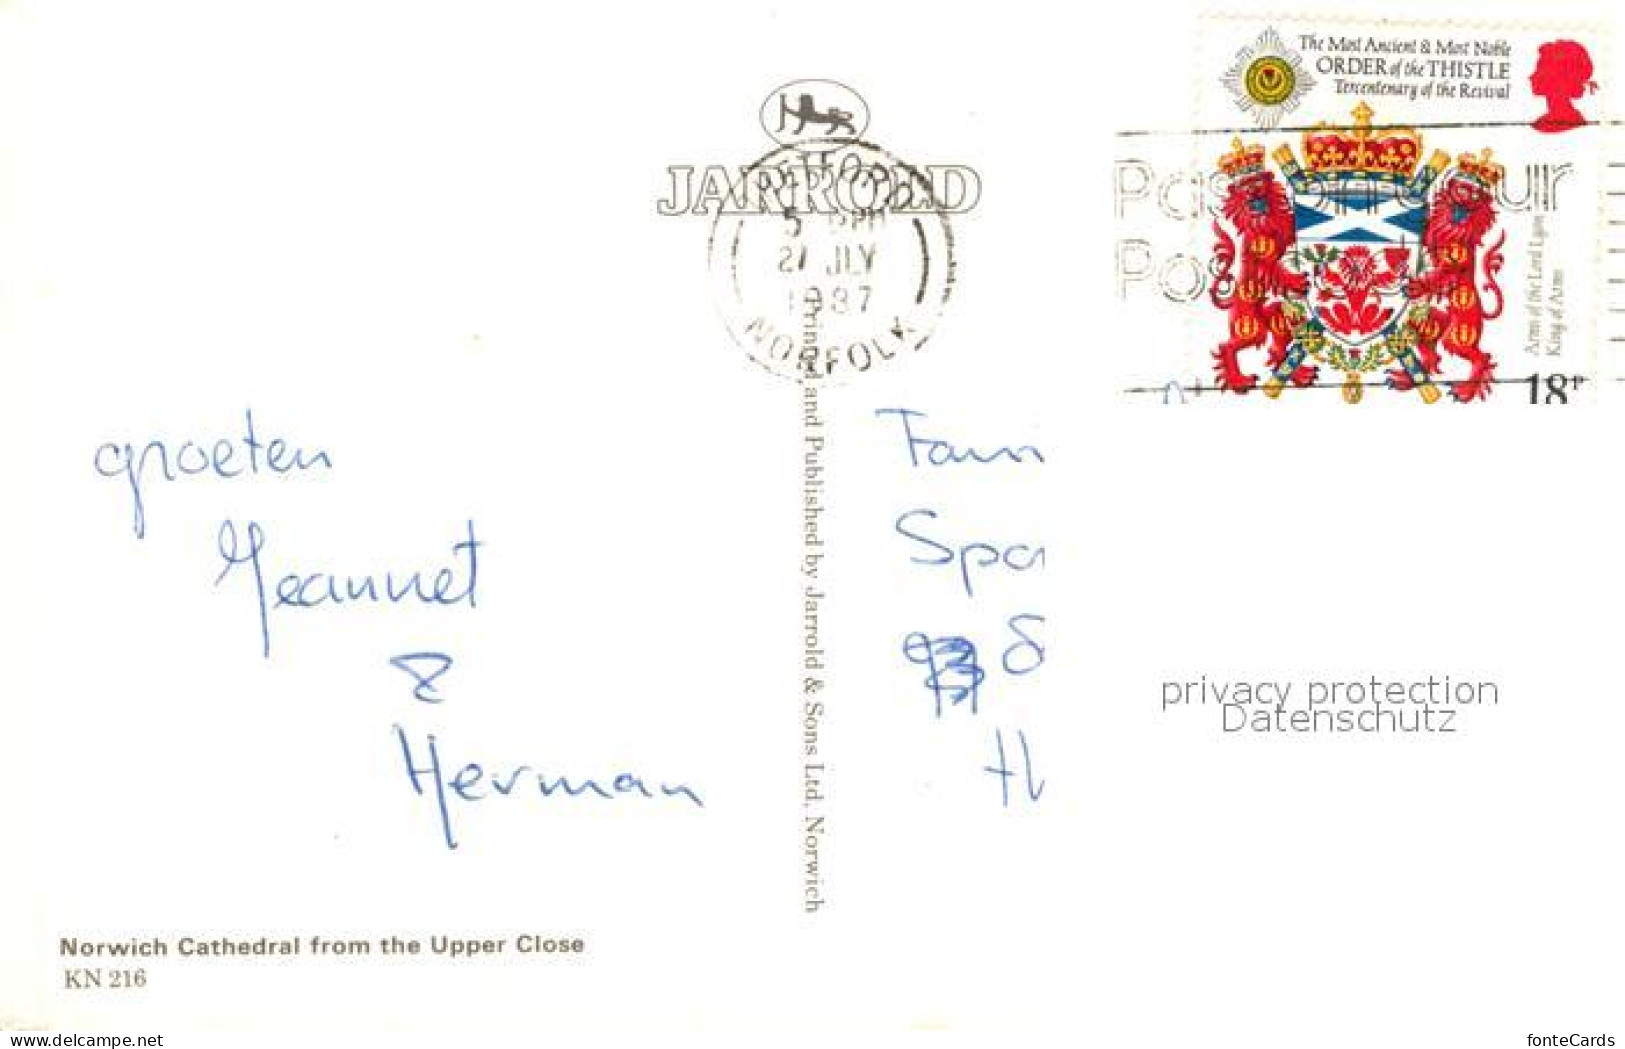 The Most Ancient & Most Noble
ORDER of the THISTLE
Tercentenary of the Revival
Arms of the Lord Lyon
King of Arms
18P
JARROLD
THETFORD
5 PM
JLY
1987
NORFOLK
groeten
Jeannet
&
Herman
Printed and Published by Jarrold & Sons Ltd, Norwich
Fam
Spa
privacy protection
Datenschutz
Norwich Cathedral from the Upper Close
KN 216
www.delcampe.net
fonteCards